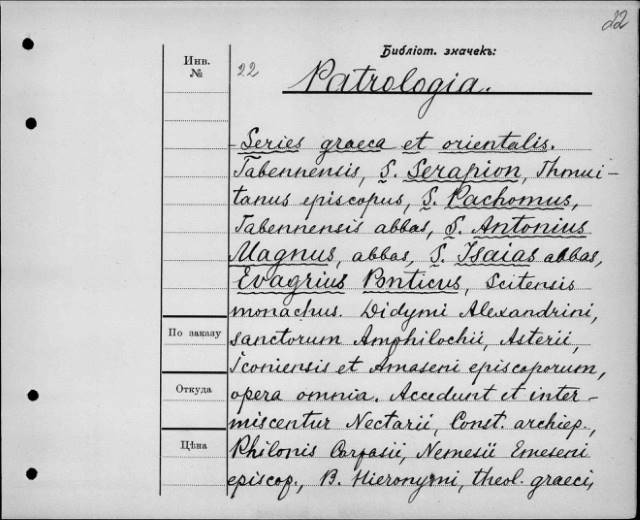 22
Библіот. значекъ:
Инв.
№
22
Patrologia.
-Series graeca et orientalis.
Tabennensis, S. Serapion, Thmui-
tanus episcopus, S. Pachomus,
Tabennensis abbas, S. Antonius
Magnus, abbas, S. Isaias abbas,
Evagrius Ponticus, Scitensis
monachus. Didymi Alexandrini,
По заказу
sanctorum Amphilochii, Asterii,
Iconiensis et Amaseni episcoporum,
Откуда
opera omnia. Accedunt et inter-
miscentur Nectarii, Const. archiep.,
Цѣна
Philonis Carpasii, Nemesii Emeseni
episcop., B. Hieronymi, theol. graeci,